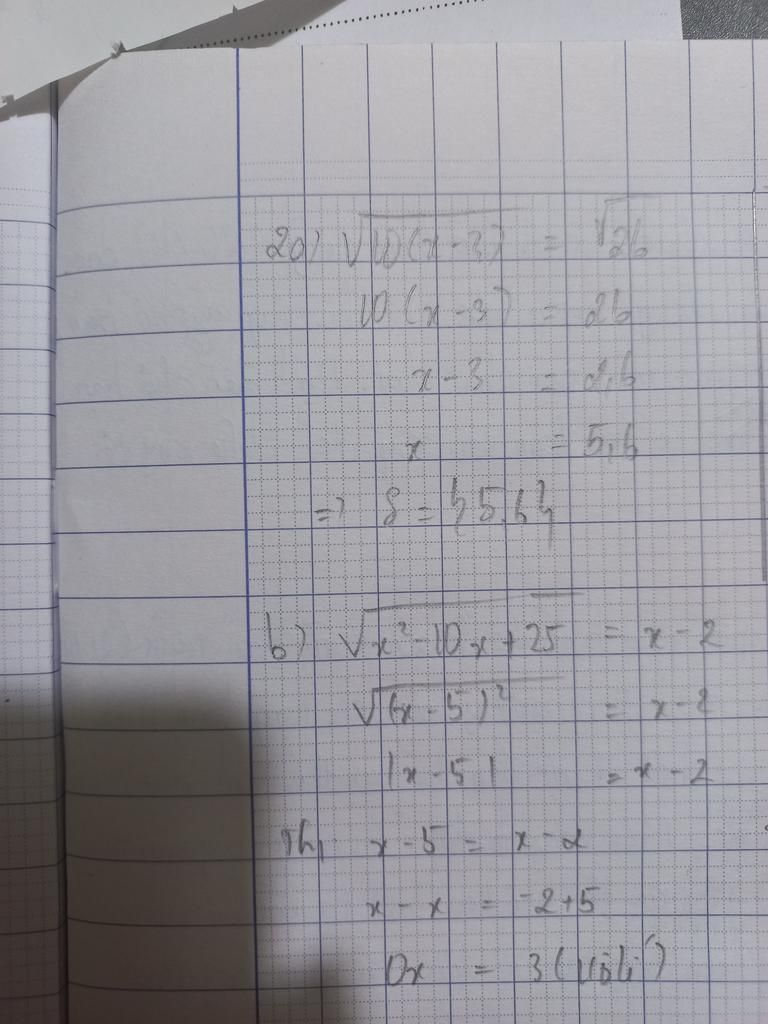 2a) √10(x-3) = √26
10(x-3) = 26
x-3 = 2,6
x = 5,6
=> S = {5,6}
b) √x²-10x+25 = x-2
√(x-5)² = x-2
|x-5| = x-2
Th1 x-5 = x-2
x-x = -2+5
0x = 3 (vôlí)